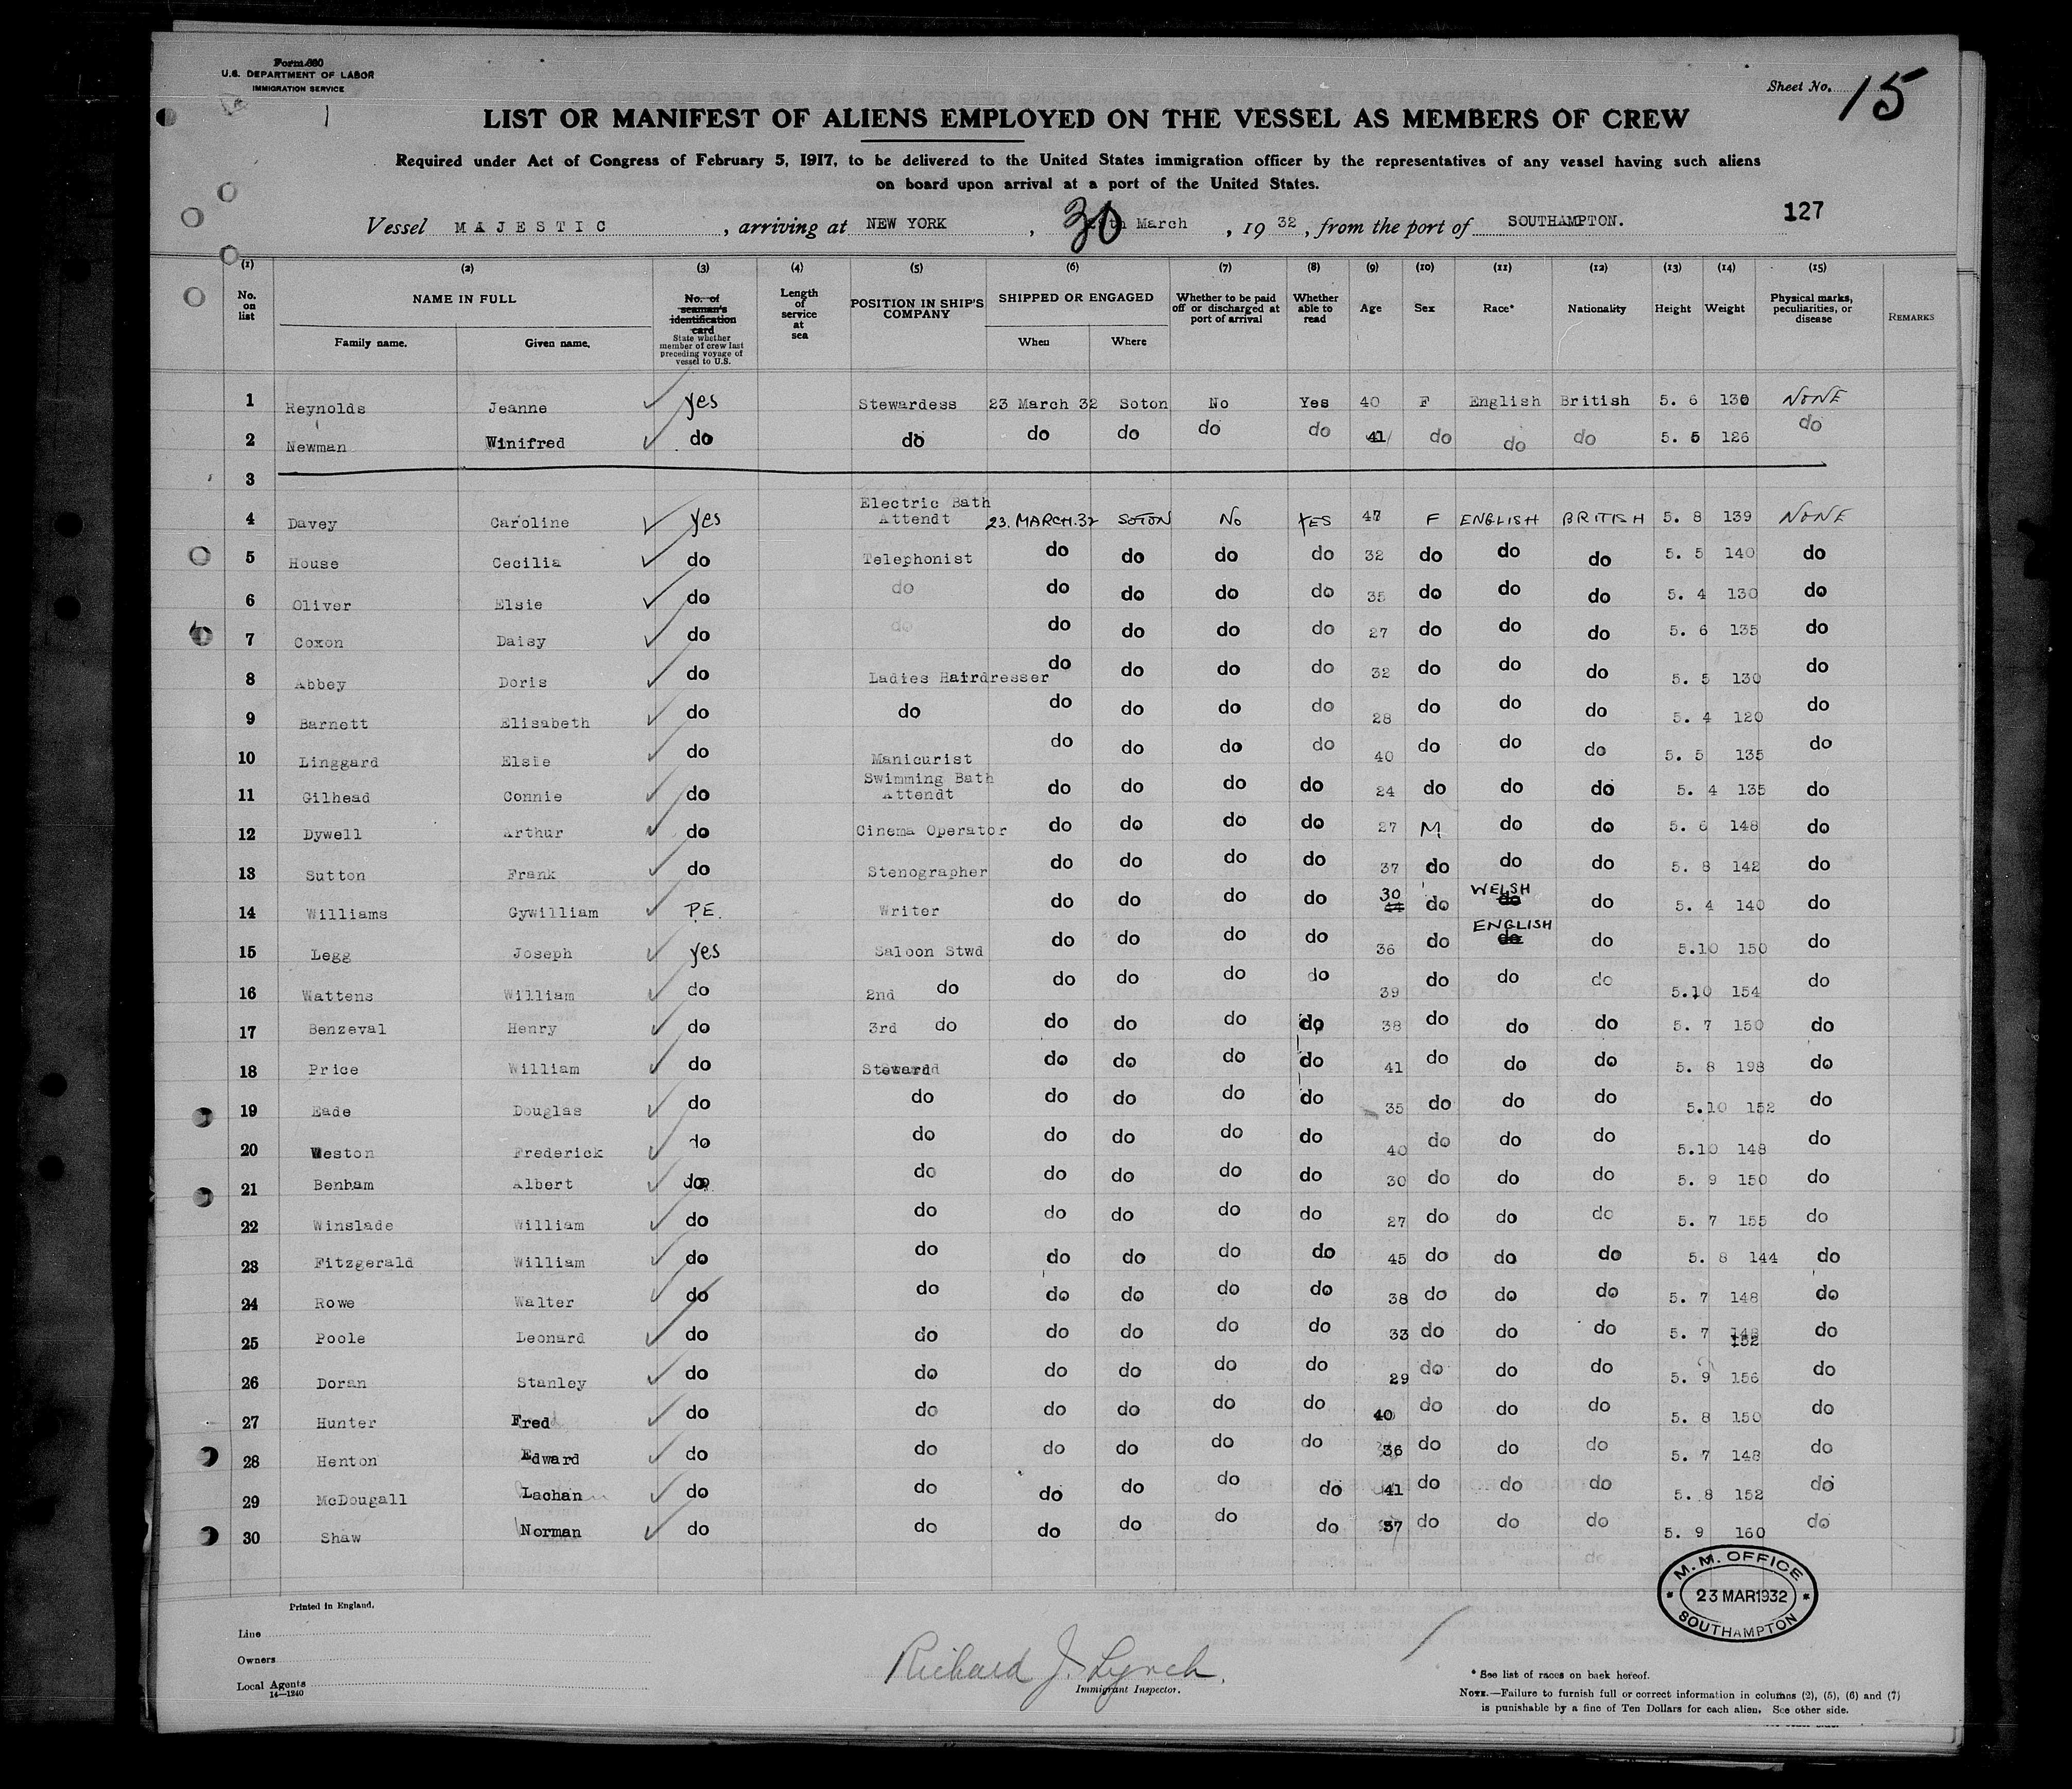 Form 680
U.S. DEPARTMENT OF LABOR
IMMIGRATION SERVICE
Sheet No. 15
LIST OR MANIFEST OF ALIENS EMPLOYED ON THE VESSEL AS MEMBERS OF CREW
Required under Act of Congress of February 5, 1917, to be delivered to the United States immigration officer by the representatives of any vessel having such aliens
on board upon arrival at a port of the United States.
Vessel MAJESTIC, arriving at NEW YORK, 30 March, 1932, from the port of SOUTHAMPTON.
127
(1) (2) (3) (4) (5) (6) (7) (8) (9) (10) (11) (12) (13) (14) (15)
No. on list NAME IN FULL Family name. Given name. No. of seaman's identification card State whether member of crew last preceding voyage of vessel to U.S. Length of service at sea POSITION IN SHIP'S COMPANY SHIPPED OR ENGAGED When Where Whether to be paid off or discharged at port of arrival Whether able to read Age Sex Race* Nationality Height Weight Physical marks, peculiarities, or disease REMARKS
1 Reynolds Jeanne yes Stewardess 23 March 32 Soton No Yes 40 F English British 5. 6 130 NONE
2 Newman Winifred do do do do do do 41 do do do 5. 5 126 do
3
4 Davey Caroline yes Electric Bath Attendt 23. MARCH. 32 SOTON No YES 47 F ENGLISH BRITISH 5. 8 139 NONE
5 House Cecilia do Telephonist do do do do 32 do do do 5. 5 140 do
6 Oliver Elsie do do do do do do 35 do do do 5. 4 130 do
7 Coxon Daisy do do do do do do 27 do do do 5. 6 135 do
8 Abbey Doris do Ladies Hairdresser do do do do 32 do do do 5. 5 130 do
9 Barnett Elisabeth do do do do do do 28 do do do 5. 4 120 do
10 Linggard Elsie do Manicurist do do do do 40 do do do 5. 5 135 do
11 Gilhead Connie do Swimming Bath Attendt do do do do 24 do do do 5. 4 135 do
12 Dywell Arthur do Cinema Operator do do do do 27 M do do 5. 6 148 do
13 Sutton Frank do Stenographer do do do do 37 do do do 5. 8 142 do
14 Williams Gywilliam P.E. Writer do do do do 30 44 do WELSH do do 5. 4 140 do
15 Legg Joseph yes Saloon Stwd do do do do 36 do ENGLISH do do 5.10 150 do
16 Wattens William do 2nd do do do do do 39 do do do 5.10 154 do
17 Benzeval Henry do 3rd do do do do do 38 do do do 5. 7 150 do
18 Price William do Steward do do do do 41 do do do 5. 8 198 do
19 Eade Douglas do do do do do do 35 do do do 5.10 152 do
20 Weston Frederick do do do do do do 40 do do do 5.10 148 do
21 Benham Albert do do do do do do 30 do do do 5. 9 150 do
22 Winslade William do do do do do do 27 do do do 5. 7 155 do
23 Fitzgerald William do do do do do do 45 do do do 5. 8 144 do
24 Rowe Walter do do do do do do 38 do do do 5. 7 148 do
25 Poole Leonard do do do do do do 33 do do do 5. 7 152 do
26 Doran Stanley do do do do do do 29 do do do 5. 9 156 do
27 Hunter Fred do do do do do do 40 do do do 5. 8 150 do
28 Henton Edward do do do do do do 36 do do do 5. 7 148 do
29 McDougall Lachan do do do do do do 41 do do do 5. 8 152 do
30 Shaw Norman do do do do do do 37 do do do 5. 9 160 do
M. M. OFFICE
23 MAR 1932
SOUTHAMPTON
Printed in England.
Line
Owners
Local Agents
14—1240
Richard J. Lynch.
Immigrant Inspector.
* See list of races on back hereof.
NOTE.—Failure to furnish full or correct information in columns (2), (5), (6) and (7)
is punishable by a fine of Ten Dollars for each alien. See other side.